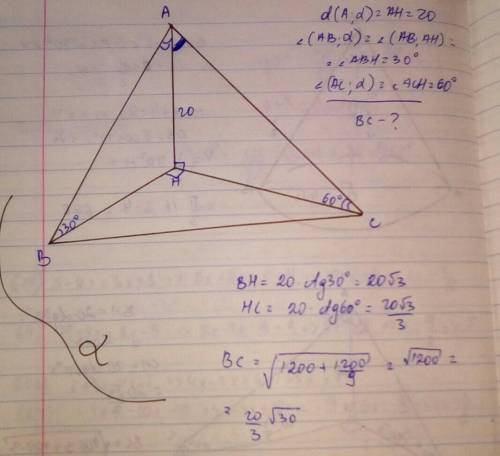 A
20
H
30°
60°
B
C
α
d(A;α)=AH=20
∠(AB;α)=∠(AB,AH)=
=∠ABH=30°
∠(AC;α)=∠ACH=60°
BC-?
BH= 20·ctg30°=20√3
HC= 20·ctg60°=20√3/3
BC= √(1200+1200/9) = √1200 =
= 20/3 √30